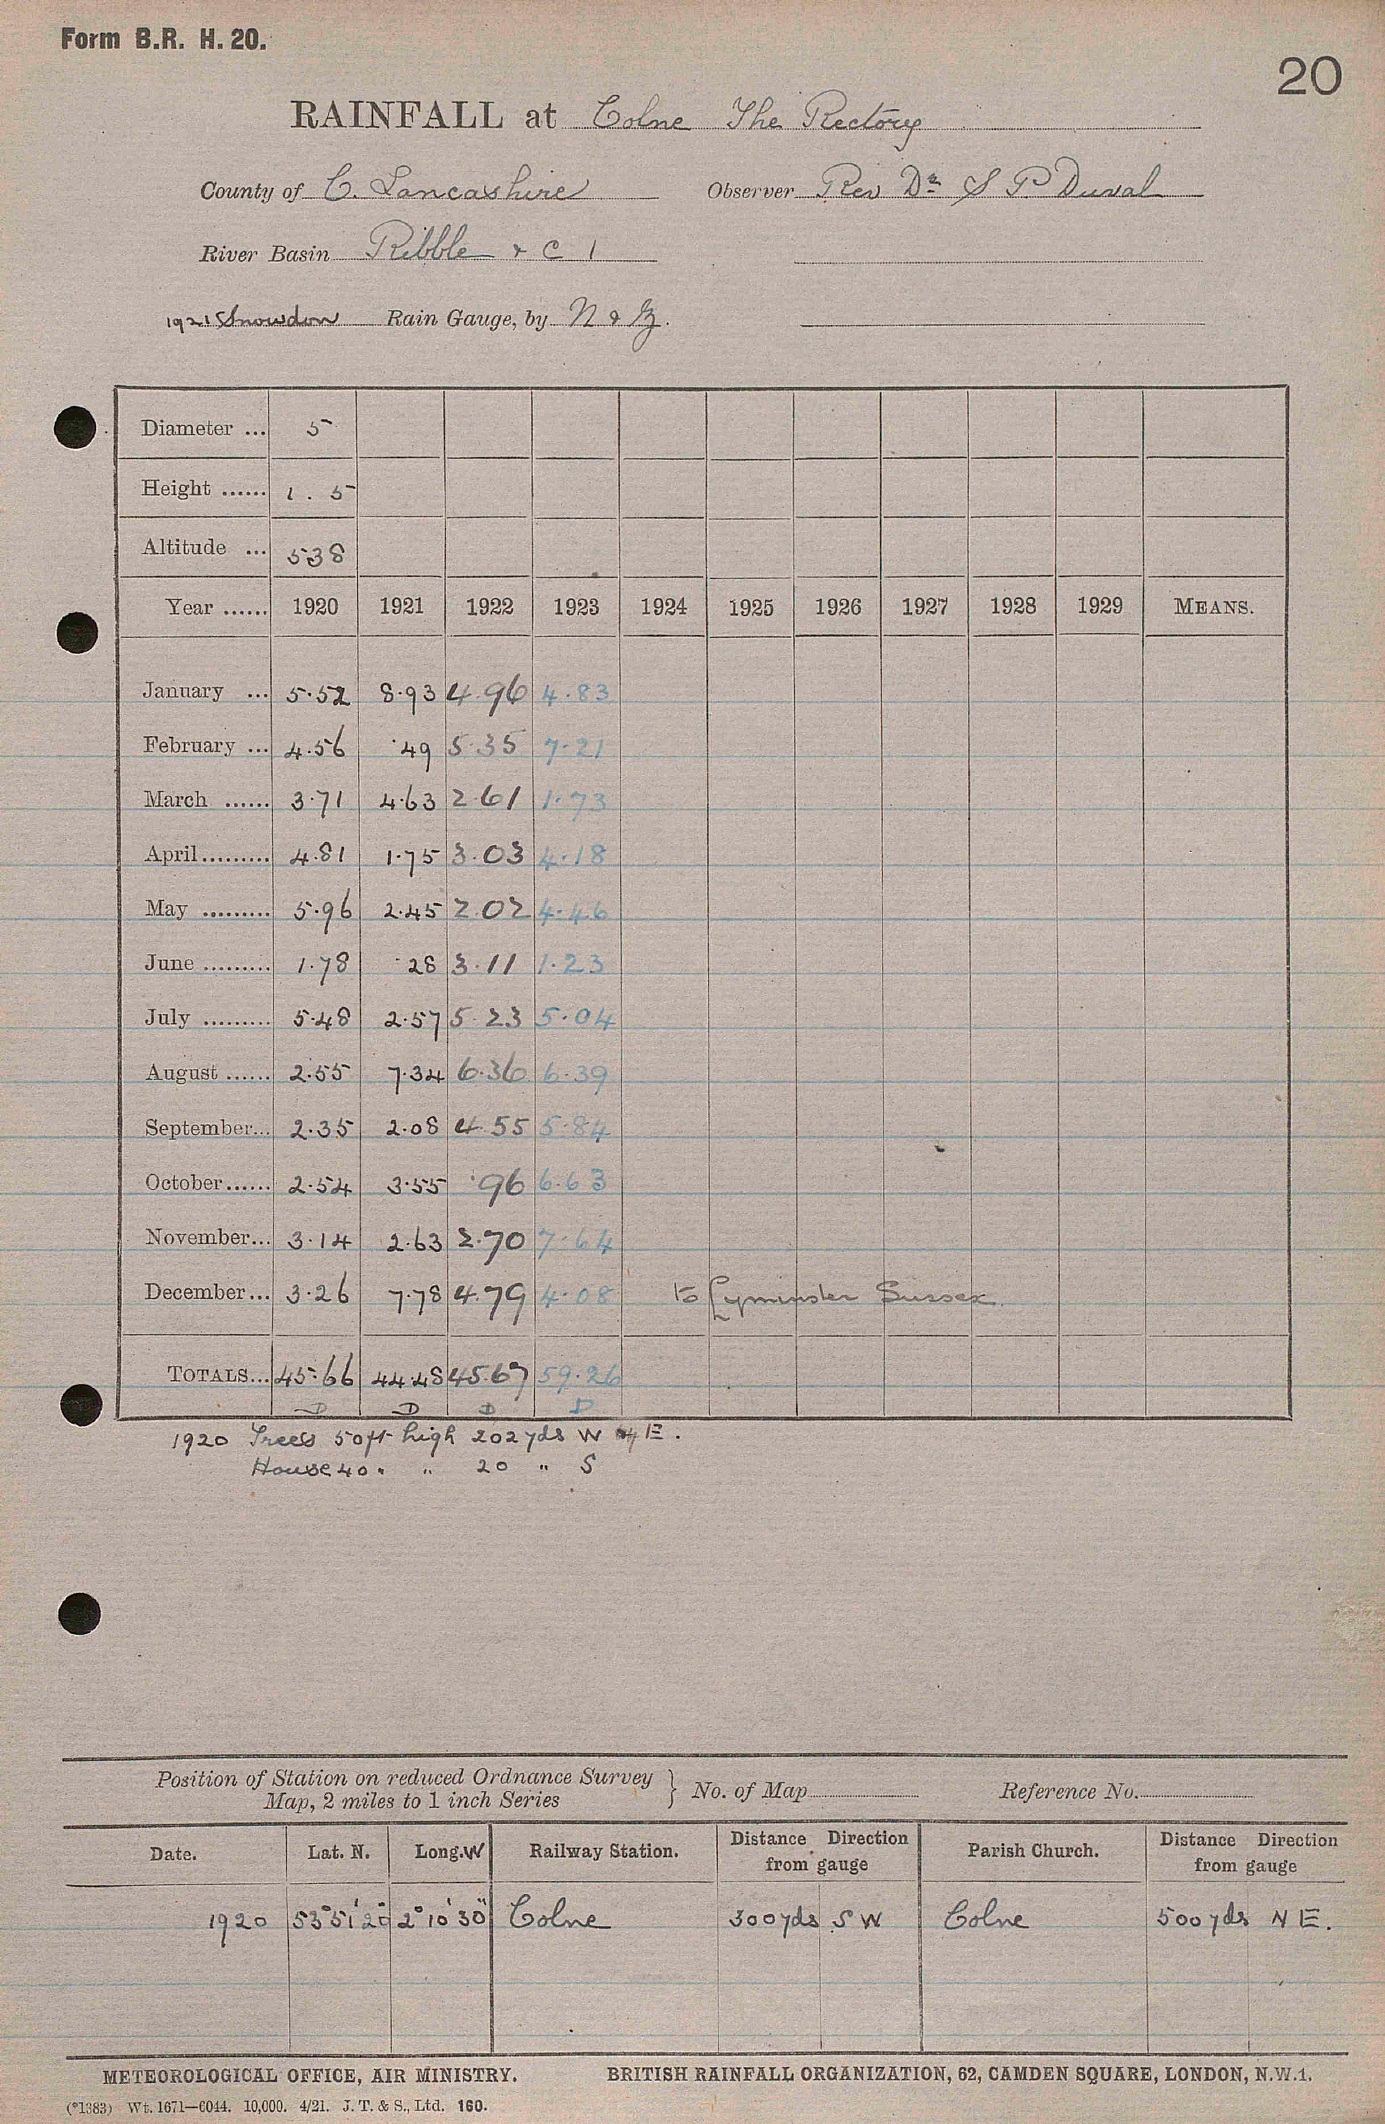 Form B.R. H. 20.
20
RAINFALL at Colne The Rectory
County of C. Lancashire Observer Rev Dr S P Duval
River Basin Ribble & C 1
1921 Snowdon Rain Gauge, by N & Z.
Diameter ... 5
Height ...... 1 . 5
Altitude ... 538
Year ...... 1920 1921 1922 1923 1924 1925 1926 1927 1928 1929 MEANS.
January ... 5.52 8.93 4.96 4.83
February ... 4.56 .49 5.35 7.21
March ...... 3.71 4.63 2.61 1.73
April......... 4.81 1.75 3.03 4.18
May ......... 5.96 2.45 2.02 4.46
June ......... 1.78 .28 3.11 1.23
July ......... 5.48 2.57 5.23 5.04
August ...... 2.55 7.34 6.36 6.39
September... 2.35 2.08 4.55 5.84
October...... 2.54 3.55 .96 6.63
November... 3.14 2.63 2.70 7.64
December... 3.26 7.78 4.79 4.08 to Lyminster Sussex
TOTALS... 45.66 44.48 45.67 59.26
D D D D
1920 Trees 50ft high 202yds W E.
House 40 " " 20 " S
Position of Station on reduced Ordnance Survey
Map, 2 miles to 1 inch Series } No. of Map Reference No.
Date. Lat. N. Long. W Railway Station. Distance Direction from gauge Parish Church. Distance Direction from gauge
1920 53° 51' 20" 2° 10' 30" Colne 300yds S W Colne 500yds N E.
METEOROLOGICAL OFFICE, AIR MINISTRY. BRITISH RAINFALL ORGANIZATION, 62, CAMDEN SQUARE, LONDON, N.W.1.
(*1383) Wt. 1671—6044. 10,000. 4/21. J. T. & S., Ltd. 160.